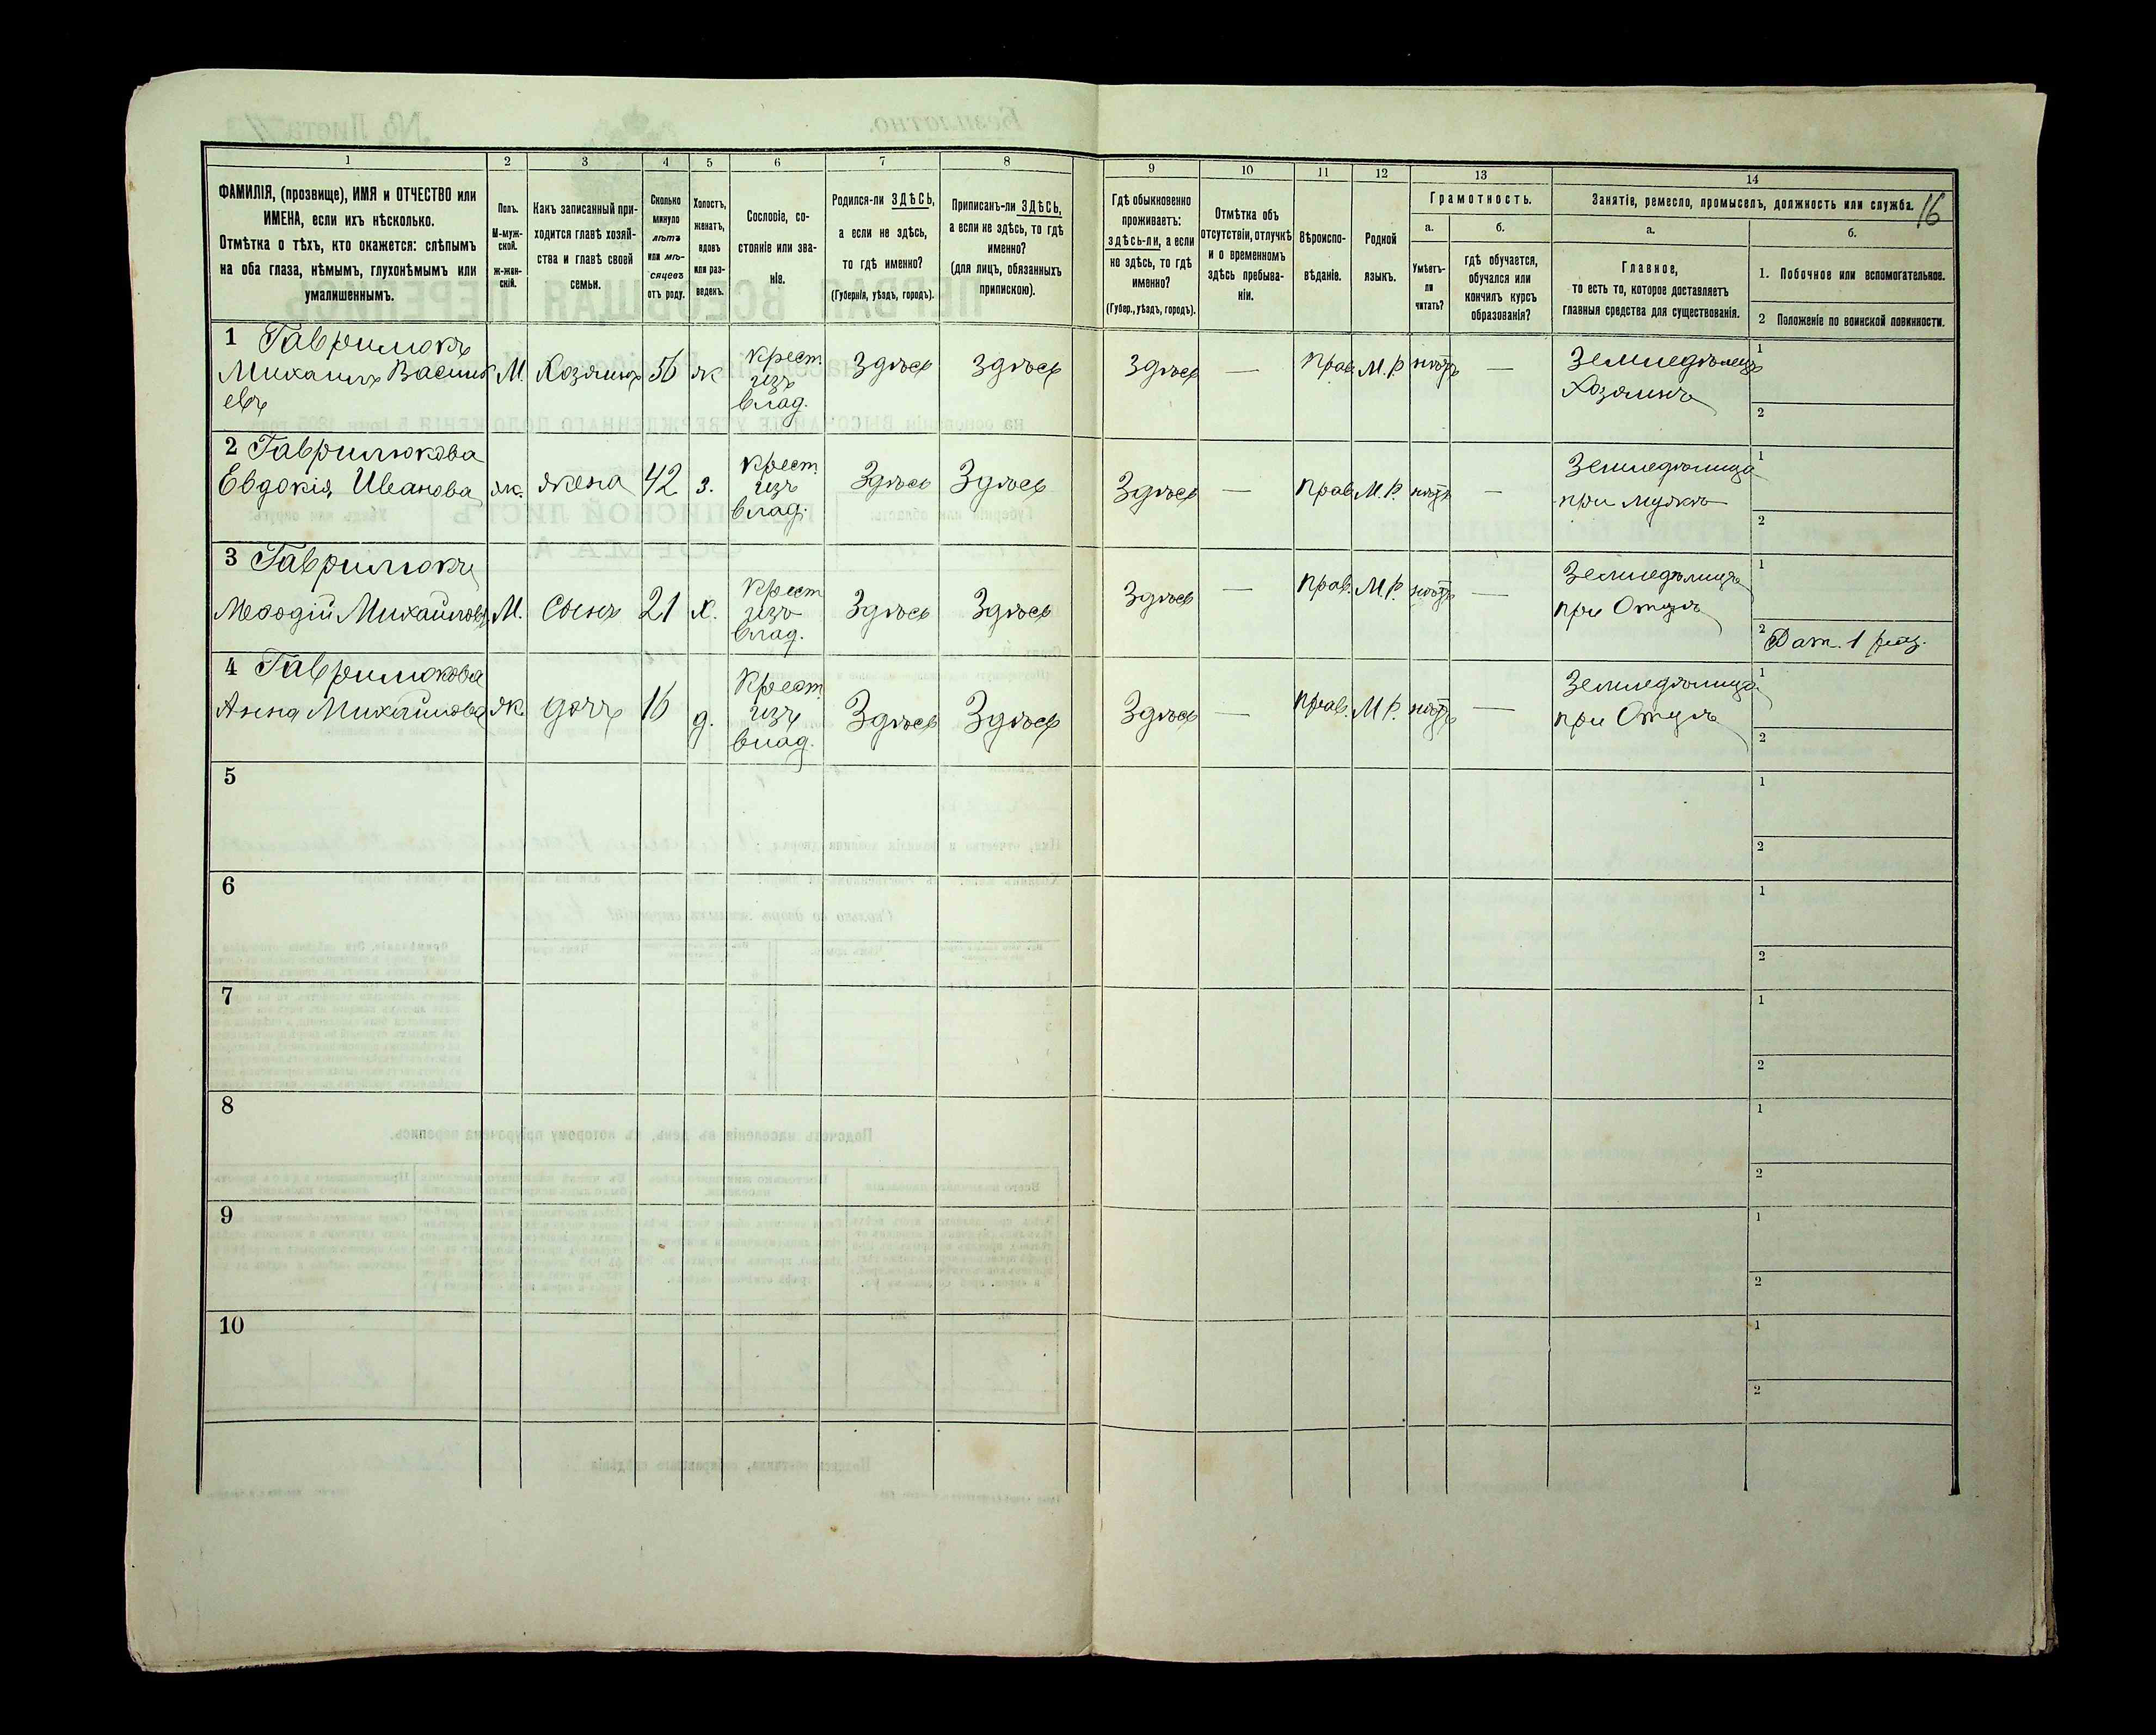 1 2 3 4 5 6 7 8 9 10 11 12 13 14
ФАМИЛІЯ, (прозвище), ИМЯ и ОТЧЕСТВО или
ИМЕНА, если ихъ нѣсколько.
Отмѣтка о тѣхъ, кто окажется: слѣпымъ
на оба глаза, нѣмымъ, глухонѣмымъ или
умалишеннымъ.
Полъ.
М-муж-
ской.
Ж-жен-
скій.
Какъ записанный при-
ходится главѣ хозяй-
ства и главѣ своей
семьи.
Сколько
минуло
лѣтъ
или мѣ-
сяцевъ
отъ роду.
Холостъ,
женатъ,
вдовъ
или раз-
веденъ.
Сословіе, со-
стояніе или зва-
ніе.
Родился-ли ЗДѢСЬ,
а если не здѣсь,
то гдѣ именно?
(Губернія, уѣздъ, городъ).
Приписанъ-ли ЗДѢСЬ,
а если не здѣсь, то гдѣ
именно?
(для лицъ, обязанныхъ
припискою).
Гдѣ обыкновенно
проживаетъ:
здѣсь-ли, а если
не здѣсь, то гдѣ
именно?
(Губер., уѣздъ, городъ).
Отмѣтка объ
отсутствіи, отлучкѣ
и о временномъ
здѣсь пребыва-
ніи.
Вѣроиспо-
вѣданіе.
Родной
языкъ.
Грамотность.
а.
Умѣетъ-
ли
читать?
б.
гдѣ обучается,
обучался или
кончилъ курсъ
образованія?
Занятіе, ремесло, промыселъ, должность или служба.
16
а.
Главное,
то есть то, которое доставляетъ
главныя средства для существованія.
б.
1. Побочное или вспомогательное.
2 Положеніе по воинской повинности.
1 Гаврилюкъ
Михаилъ Василь
евъ
М. Хозяинъ 56 ж
Крест.
изъ
влад.
Здѣсь Здѣсь Здѣсь — Прав. М.Р. нѣтъ —
Земледѣлецъ
Хозяинъ
1
2
2 Гаврилюкова
Евдокія Иванова
ж. жена 42 з.
Крест.
изъ
влад.
Здѣсь Здѣсь Здѣсь — Прав. М.Р. нѣтъ —
Земледѣлица
при мужѣ
1
2
3 Гаврилюкъ
Меѳодій Михайловъ
М. Сынъ 21 х.
Крест
изъ
влад.
Здѣсь Здѣсь Здѣсь — Прав. М.Р. нѣтъ —
Земледѣлецъ
при Отцѣ
1
2
4 Гаврилюкова
Анна Михайлова
ж. дочь 16 д.
Крест.
изъ
влад.
Здѣсь Здѣсь Здѣсь — Прав. М.Р. нѣтъ —
Земледѣлица
при Отцѣ
1
2
5
1
2
6
1
2
7
1
2
8
1
2
9
1
2
10
1
2